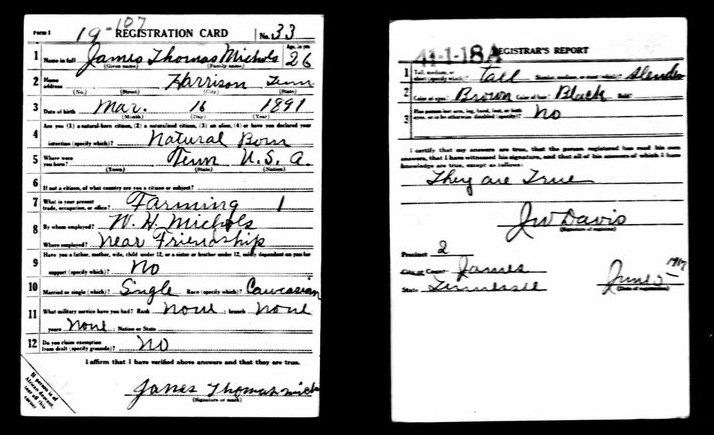 Form 1 19-107 REGISTRATION CARD No. 33
1 Name in full James Thomas Michols Age, in yrs. 26
(Given name) (Family name)
2 Home address Harrison Tenn
(No.) (Street) (City) (State)
3 Date of birth Mar. 16 1891
(Month) (Day) (Year)
4 Are you (1) a natural-born citizen, (2) a naturalized citizen, (3) an alien, (4) or have you declared your
intention (specify which)? Natural Born
5 Where were you born? Tenn U.S.A.
(Town) (State) (Nation)
6 If not a citizen, of what country are you a citizen or subject?
7 What is your present trade, occupation, or office? Farming 1
8 By whom employed? W. H. Michols
Where employed? Near Friendship
9 Have you a father, mother, wife, child under 12, or a sister or brother under 12, solely dependent on you for
support (specify which)? No
10 Married or single (which)? Single Race (specify which)? Caucasian
11 What military service have you had? Rank None ; branch None
years None ; Nation or State
12 Do you claim exemption from draft (specify grounds)? No
I affirm that I have verified above answers and that they are true.
James Thomas Mich
(Signature or mark)
If person is of African descent, tear off this corner
41-1-18A REGISTRAR'S REPORT
1 Tall, medium, or short (specify which)? Tall Slender, medium, or stout (which)? Slender
2 Color of eyes? Brown Color of hair? Black Bald?
3 Has person lost arm, leg, hand, foot, or both eyes, or is he otherwise disabled (specify)? No
I certify that my answers are true, that the person registered has read his own
answers, that I have witnessed his signature, and that all of his answers of which I have
knowledge are true, except as follows:
They are True
J W Davis
(Signature of registrar)
Precinct 2
City or County James
State Tennessee June 5 1917
(Date of registration)